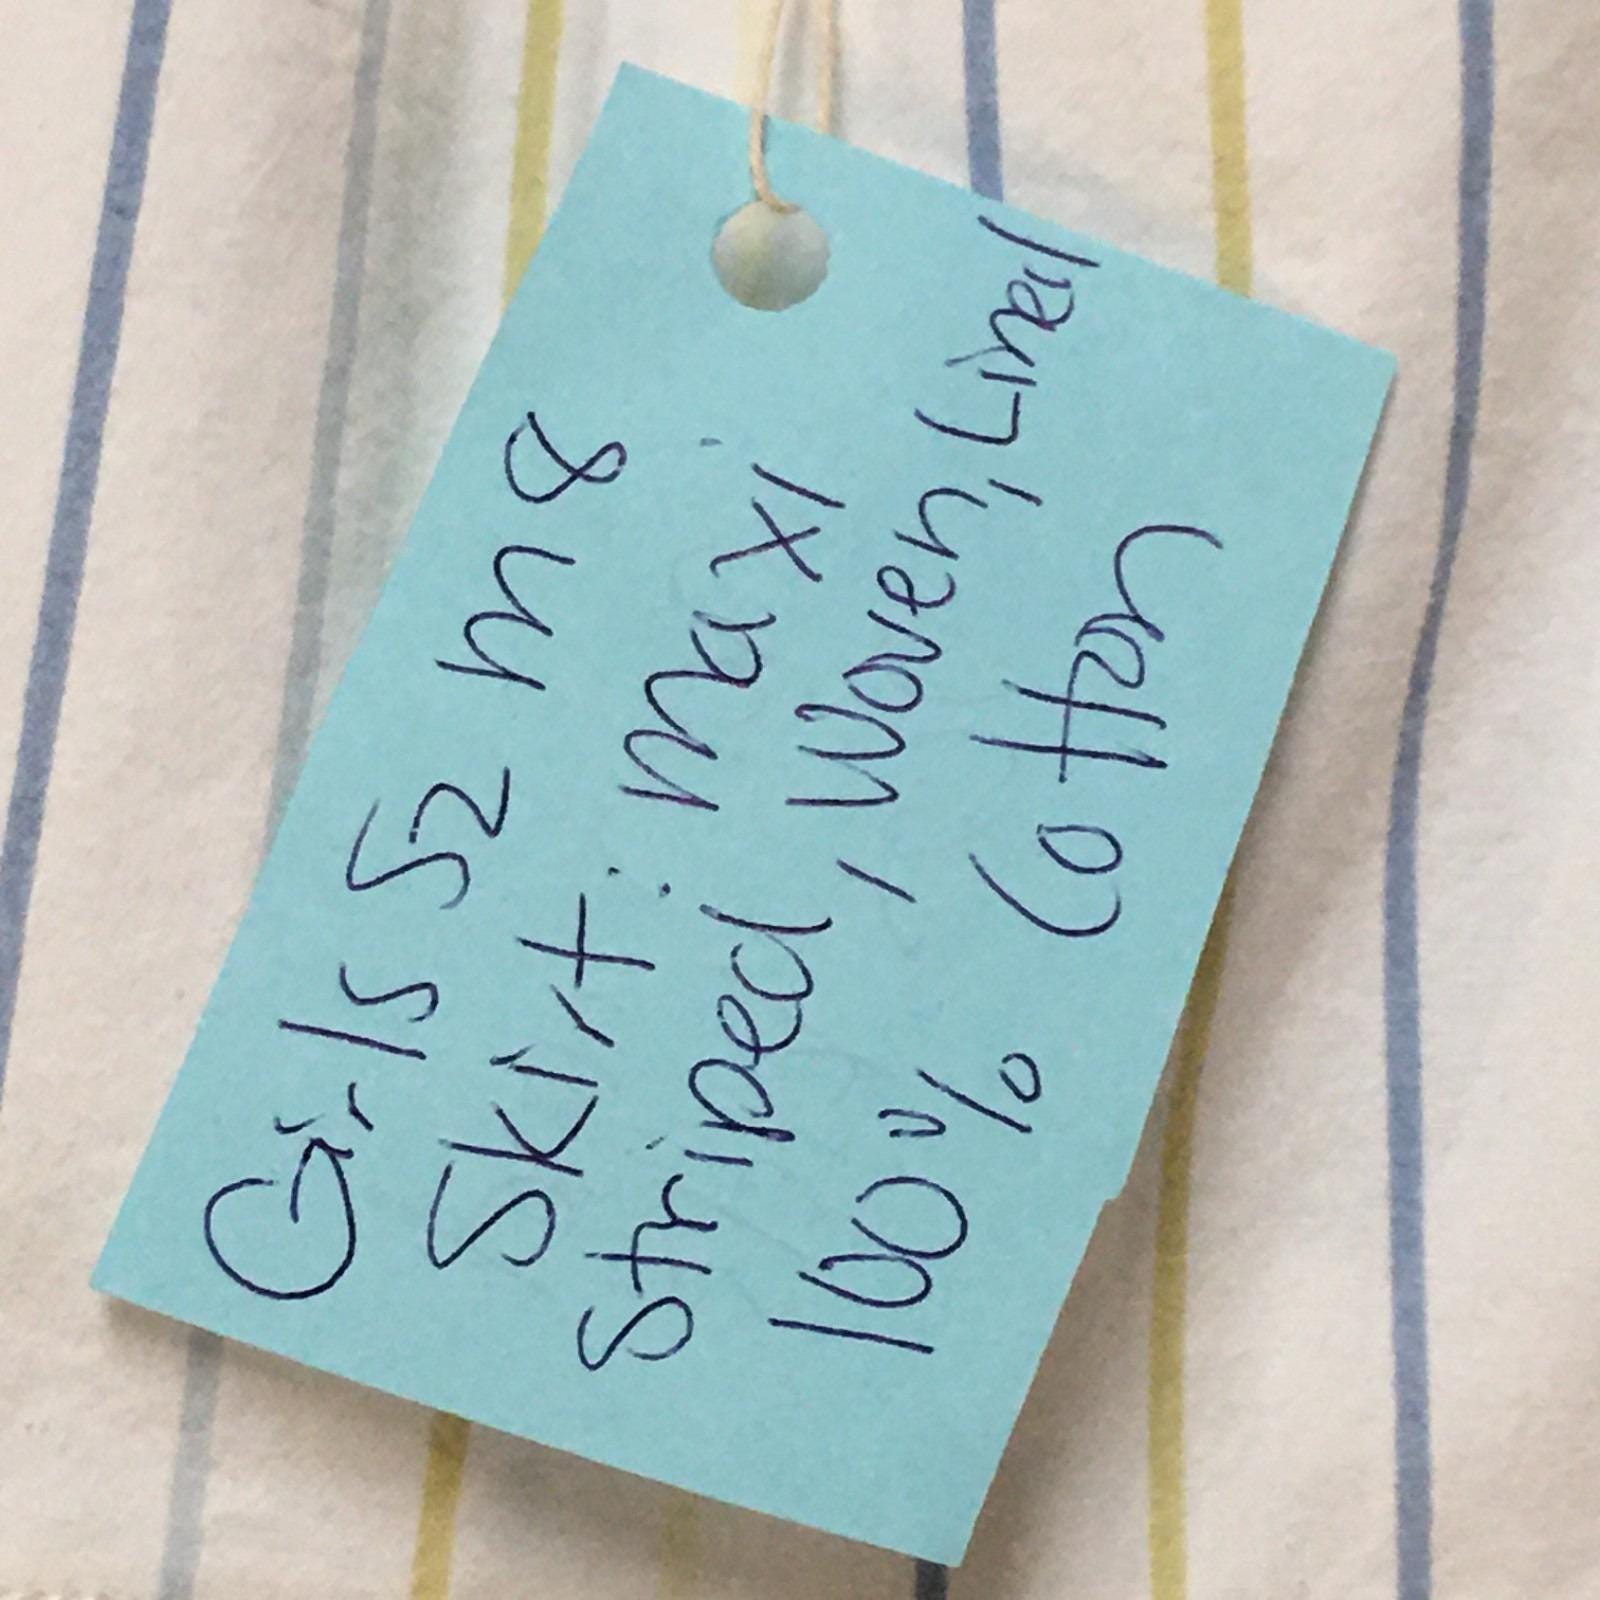 Girls Sz m 8
Skirt: maxi
Striped, Woven, Lined
100% Cotton